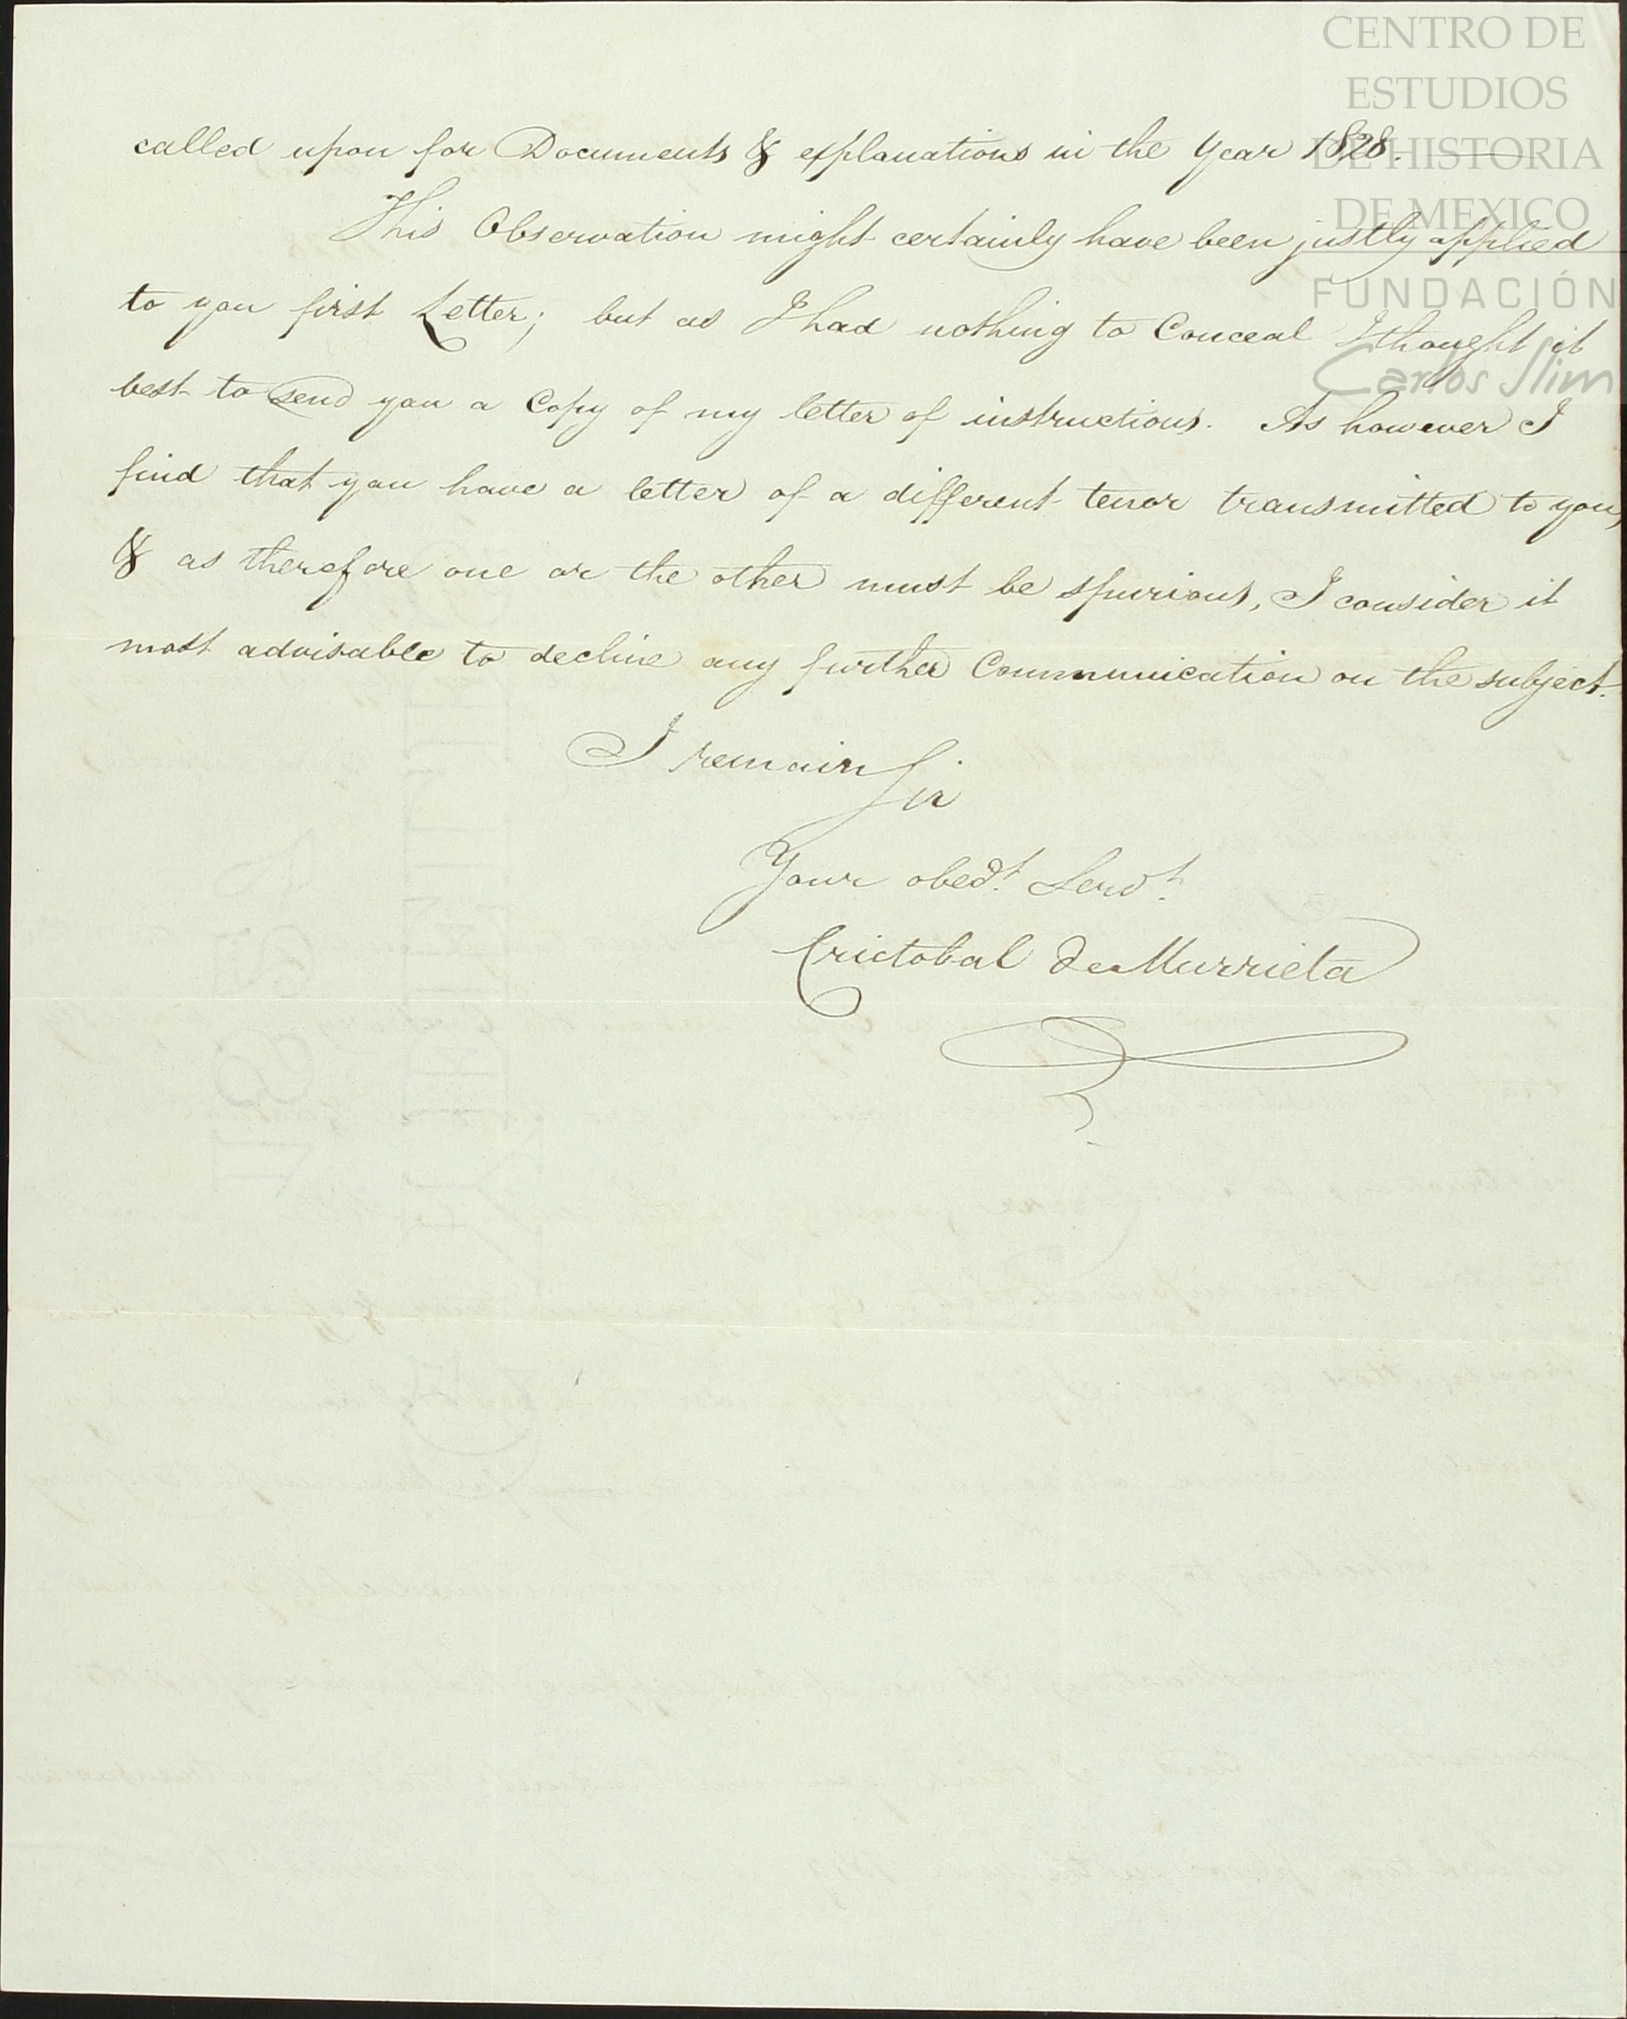 CENTRO DE
ESTUDIOS
DE HISTORIA
DE MEXICO
FUNDACIÓN
Carlos Slim
called upon for Documents & explanations in the Year 1828.
This Observation might certainly have been justly applied
to you first Letter; but as I had nothing to Conceal I thought it
best to send you a Copy of my letter of instructions. As however I
find that you have a letter of a different tenor transmitted to you,
& as therefore one or the other must be spurious, I consider it
most advisable to decline any further Communication on the subject.
I remain Sir
Your obedt. Servt.
Cristobal de Murrieta